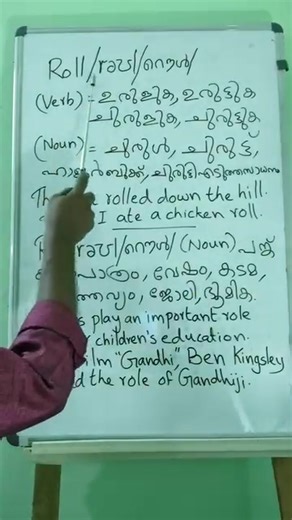 Roll/rəʊl/റൌൾ/
(Verb) = ഉരുളുക, ഉരുട്ടുക
ചുരുളുക, ചുരുട്ടുക
(Noun) = ചുരുൾ, ചുരുട്ട്,
ചുരുട്ടിഎടുത്തസാധനം
rolled down the hill.
I ate a chicken roll.
/rəʊl/റൌൾ/ (Noun) പങ്ക്
വേഷം, കടമ,
ജോലി, ഭൂമിക.
play an important role
children's education.
film "Gandhi", Ben Kingsley
the role of Gandhiji.